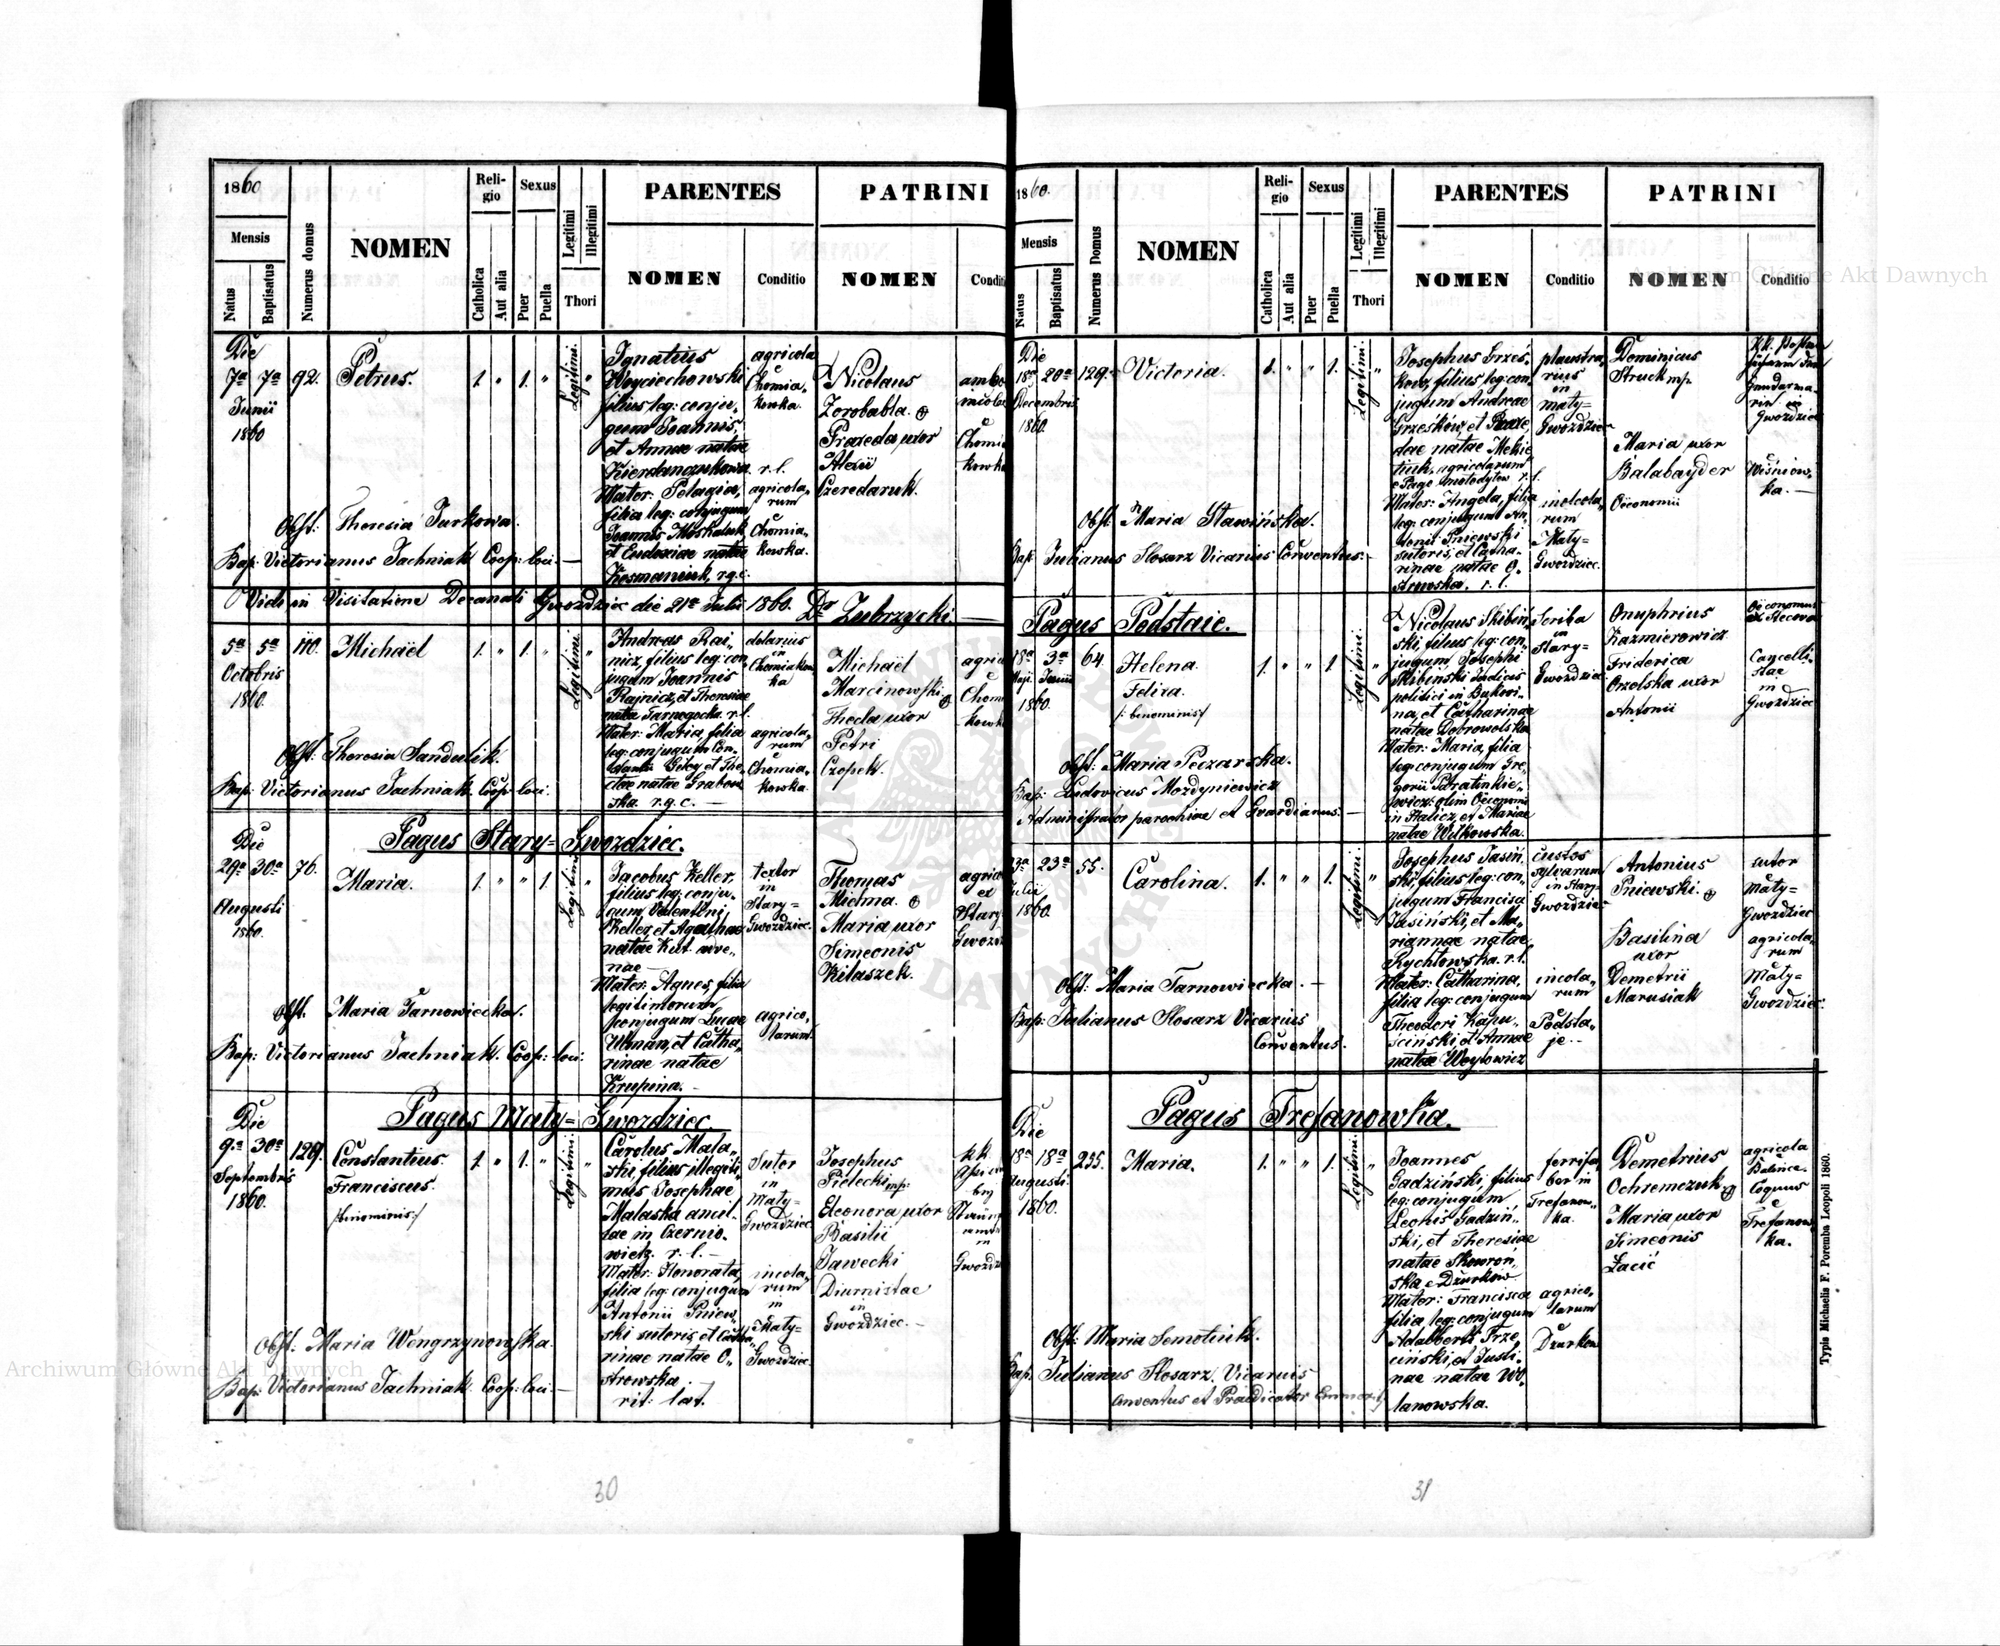 1860
Mensis
Natus
Baptisatus
Numerus domus
NOMEN
Religio
Catholica
Aut alia
Sexus
Puer
Puella
Legitimi
Illegitimi
Thori
PARENTES
NOMEN
Conditio
PATRINI
NOMEN
Die
7a 7a 92. Petrus. 1. " 1. " Legitimi. "
Junii
1860
Ignatius
Woyciechowski
filius leg: conju-
gum Joannis
et Annae natae
r. l.
Mater: Pelagia,
filia leg: conjugum
Joannis Moskaluk
et Eudoxiae natae
Kosmaniuk, r.g.c.
agricola
Chomia-
kowka.
agricola-
rum
Chomia-
kowka.
Nicolaus
Zorobabla.
Praxeda uxor
Alexii
Czeredaruk.
Obst: Theresia Jurkowa.
Bap: Victorianus Jachniak Coop: loci.
Vidi in Visitatione Decanali Gwozdziec die 21a Julii 1860. Dr Zubrzycki.
5a 5a 110. Michaël 1. " 1. " Legitimi. "
Octobris
1860.
Andreas Rai-
nicz, filius leg: con-
jugum Joannis
Rajnicz, et Theresiae
natae Tarnogocka. r.l.
Mater: Maria, filia
leg: conjugum
natae Grabow-
ska. r.g.c.
dolarius
in
Chomiakow-
ka
agricola-
rum
Chomia-
kowka.
Michaël
Marcinowski
Thecla uxor
Petri
Czopek.
Obst: Theresia Sandulik.
Bap: Victorianus Jachniak Coop: loci.
Pagus Stary-Gwozdziec.
Die
29a 30a 76. Maria. 1. " " 1. Legitimi "
Augusti
1860.
Jacobus Keller,
filius leg: conju-
gum Valentini
Keller, et Agathae
natae Kut. arve-
nae
Mater: Agnes, filia
legitimorum
conjugum Lucae
Uhman, et Catha-
rinae natae
Krupina.
textor
in
Stary-
Gwozdziec.
agrico-
larum.
Thomas
Michna.
Maria uxor
Simeonis
Kitaszek.
Obst. Maria Tarnowiecka.
Bap: Victorianus Jachniak. Coop: loci.
Pagus Maty-Gwozdziec.
Die
9a 30a 129. Constantius 1. " 1. " Legitimi. "
Septembris Franciscus.
1860. /:binominis:/
Carolus Mala-
ski, filius illegiti-
mus Josephae
Malaska ancil-
lae in Czernio-
wietz. r. l.
Mater: Honorata,
filia leg: conjugum
Antonii Pniew-
ski sutoris, et Catha-
rinae natae O-
strowska.
rit: lat.
Sutor
in
Maty-
Gwozdziec.
incola-
rum
in
Maty-
Gwozdziec.
Josephus
Pielecki mp:
Eleonora uxor
Basilii
Jawecki
Diurnistae
in
Gwozdziec.
Obst: Maria Wengrzynowska.
Bap: Victorianus Jachniak. Coop: loci.
30
1860.
Mensis
Natus
Baptisatus
Numerus Domus
NOMEN
Religio
Catholica
Aut alia
Sexus
Puer
Puella
Legitimi
Illegitimi
Thori
PARENTES
NOMEN
Conditio
PATRINI
NOMEN
Conditio
Die
18a 20a 129. Victoria. 1. " " 1. Legitimi. "
Decembris
1860.
Josephus Grześ-
kow, filius leg: con-
jugum Andreae
Grześków, et Praxe-
dae natae
agricolarum
r. l.
Mater: Angela, filia
leg: conjugum An-
tonii Pniewski
sutoris, et Catha-
rinae natae O-
strowska. r. l.
plaustra-
rius
in
maty-
Gwozdziec
incola-
rum
Maty-
Gwozdziec.
Dominicus
Struck mp.
Maria uxor
Balabayder
Oeconomii
Gwozdziec
Wiśniow-
ka.
Obst: Maria Stawińska.
Bap: Julianus Slosarz Vicarius Conventus.
Pagus Podstaie.
18a 3a 64. Helena 1. " " 1 Legitimi. "
Maji Junii Felixa.
1860. /: binominis:/
Nicolaus Skibiń-
ski, filius leg: con-
jugum Josephi
Skibiński Judicis
politici in Bukovi-
na, et Catharinae
natae Dobrowolska
Mater: Maria, filia
leg: conjugum Gre-
gorii
olim Oeconomi
in Halicz, et Mariae
natae Witkowska.
Scriba
in
Stary-
Gwozdziec
Onuphrius
Kazmierowicz
Friderica
Orzolska uxor
Antonii
Oeconomus
Cancelli-
stae
in
Gwozdziec
Obst: Maria Peczarska.
Bap: Ludovicus Mozdyniewicz
Administrator parochiae et Gvardianus.
23a 23a 55. Carolina. 1. " " 1. Legitimi. "
Julii
1860.
Josephus Jasiń-
ski, filius leg: con-
jugum Francisci
Jasiński, et Ma-
riannae natae
Rychtowska. r. l.
Mater: Catharina,
filia leg: conjugum
Theodori Kapu-
ściński et Annae
natae Woytowicz
custos
sylvarum
in Stary-
Gwozdziec
incola-
rum
Podsta-
je.
Antonius
Pniewski.
Basilina
uxor
Demetrii
Marusiak
sutor
Maty-
Gwozdziec
agricola-
rum
Maty-
Gwozdziec.
Obst: Maria Tarnowiecka.
Bap: Julianus Slosarz Vicarius
Conventus.
Pagus Trefanowka.
Die
18a 18a 255. Maria. 1. " " 1. Legitimi. "
Augusti
1860.
Joannes
Gadziński, filius
leg: conjugum
Leonis Gadziń-
ski, et Theresiae
natae Skowroń-
ska e Dzurków
Mater: Francisca
filia leg: conjugum
Adalberti Trze-
ciński, et Justi-
nae natae Wo-
lanowska.
ferrifa-
ber in
Trefanow-
ka.
agrico-
larum
Dzurkow
Demetrius
Ochremczuk
Maria uxor
Simeonis
Łacić
agricola
Coquus
e
Trefanow-
ka.
Obst: Maria Semotiuk.
Bap. Julianus Slosarz. Vicarius
Conventus et Praedicator
31
Typis Michaelis F. Poremba Leopoli 1860.
Archiwum Główne Akt Dawnych
Archiwum Główne Akt Dawnych